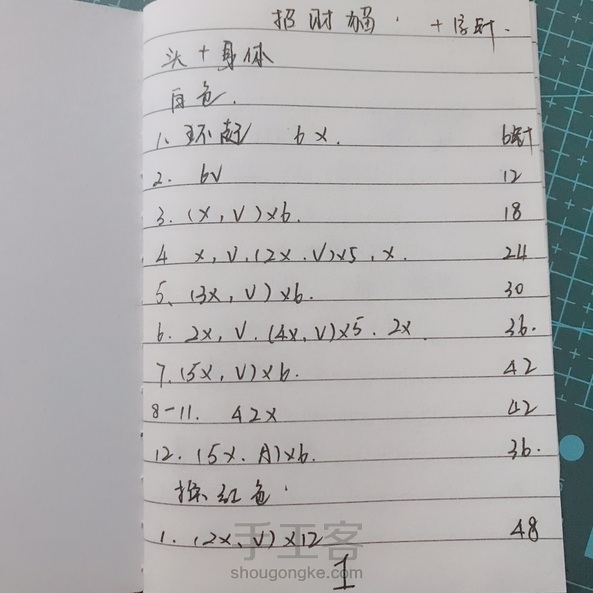 招财福. +字针.
头+身体
白色.
1、环起 6x. 6针
2. 6V 12
3. (x,V)x6. 18
4 x,V.(2x.V)x5,x. 24
5、(3x,V)x6. 30
6. 2x,V.(4x,V)x5.2x. 36.
7.(5x,V)x6. 42
8-11. 42x 42
12.(5x.A)x6. 36.
换红色.
1.(2x、V)x12 48
手工客
shougongke.com
1